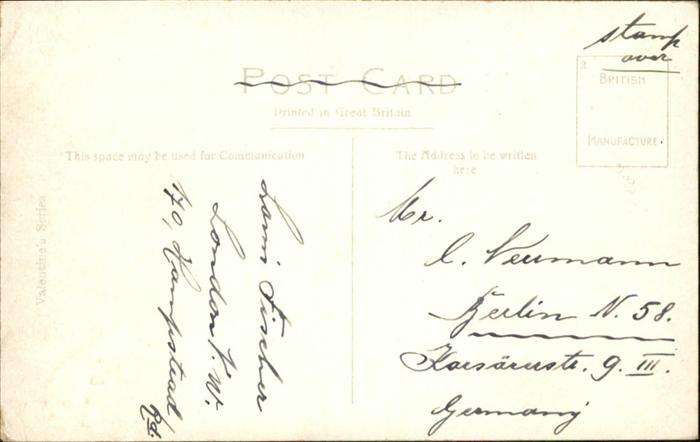 stamp
over
POST CARD
Printed in Great Britain
BRITISH
MANUFACTURE
This space may be used for Communication
The Address to be written
here
Valentine's Series
Louis Fischer
London N.W.
170, Hampstead
Rd.
Mr.
C. Neumann
Berlin N. 58.
9. III.
Germany